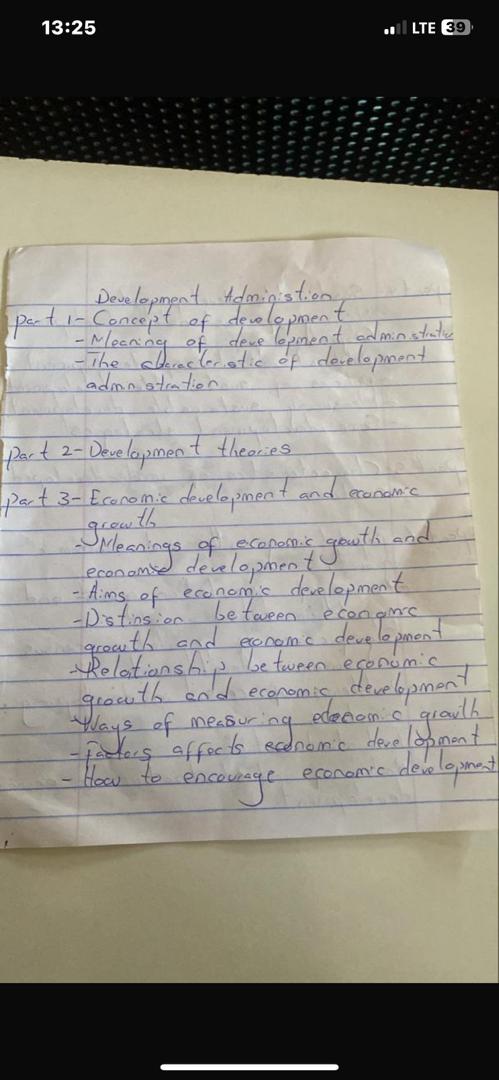 13:25
LTE 39
Development Administion
Part 1- Concept of development
- Meaning of development administrative
- The characteristic of development
admnistration
Part 2- Development theories
Part 3- Economic development and economic
growth
- Meanings of economic gowth and
economic development
- Aims of economic development
- Distinsion between economic
growth and economic development
- Relationship between economic
growth and economic development
- Ways of measuring economic growth
- Factors affects economic development
- How to encourage economic development